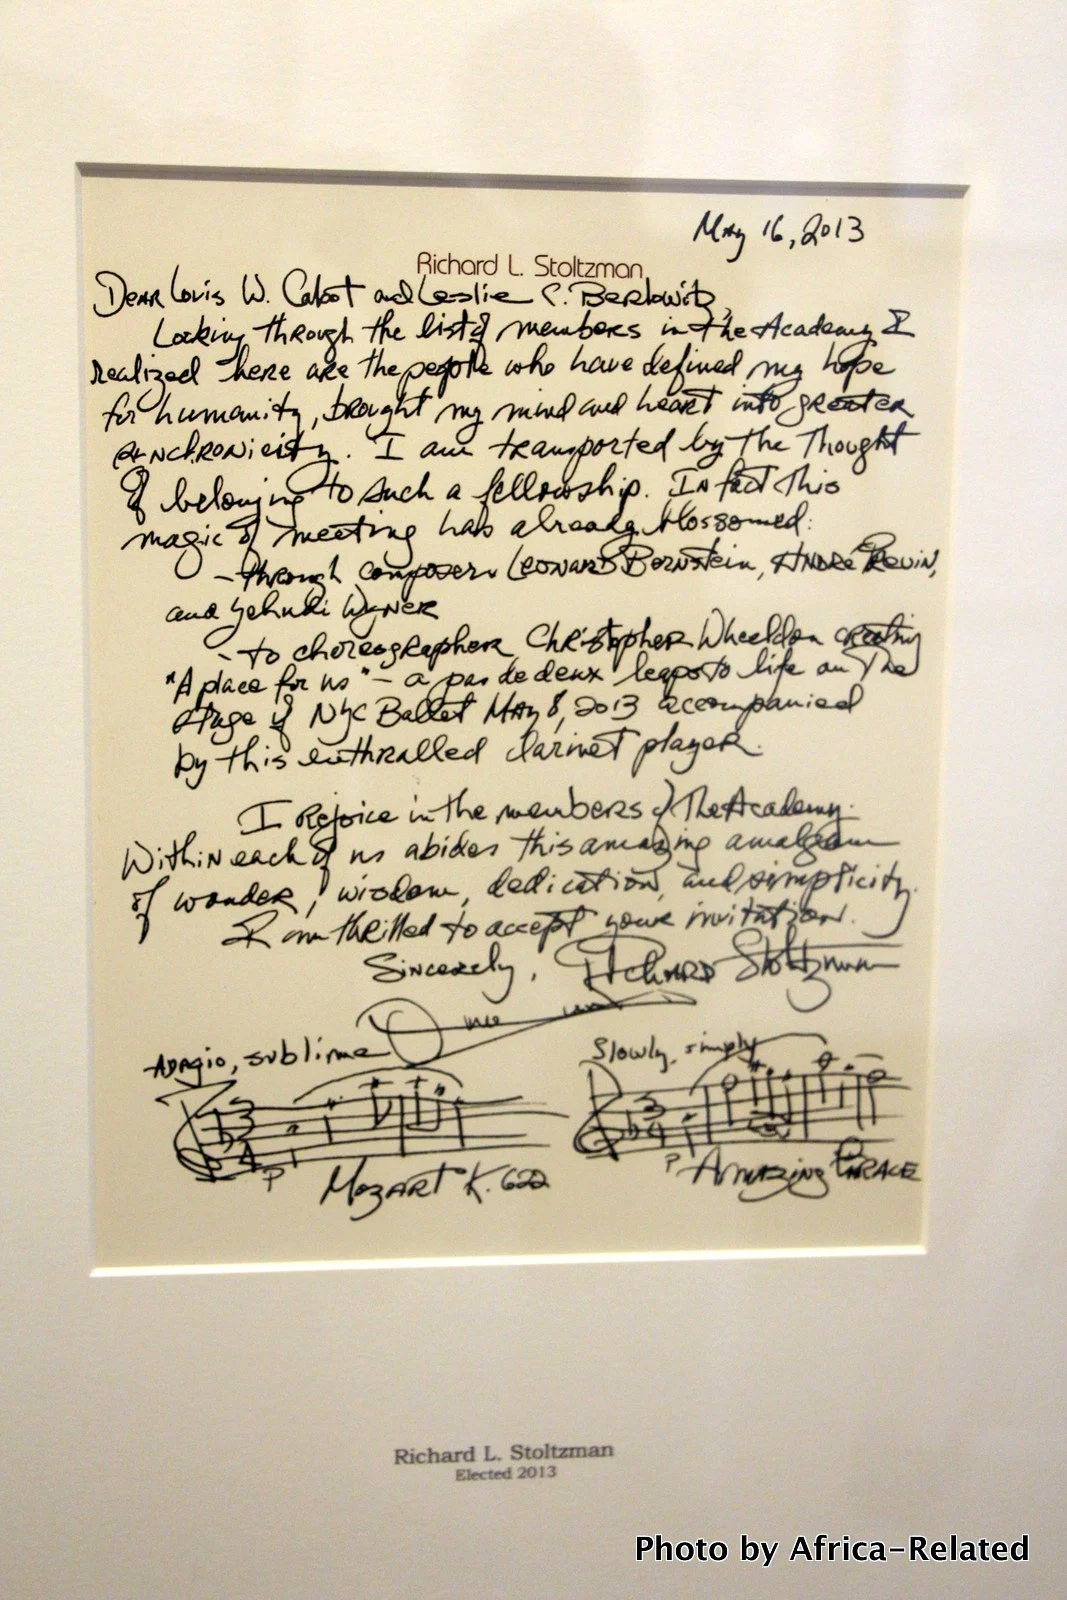 May 16, 2013
Richard L. Stoltzman
Dear Louis W. Cabot and Leslie C. Berlowitz,
Looking through the list of members in the Academy I
realized here are the people who have defined my hope
for humanity, brought my mind and heart into greater
synchronicity. I am transported by the thought
of belonging to such a fellowship. In fact this
magic of meeting has already blossomed:
- through composers Leonard Bernstein, Andre Previn,
and Yehudi Wyner
- to choreographer Christopher Wheeldon creating
"A place for us" - a pas de deux leaps to life on The
stage of NYC Ballet May 8, 2013 accompanied
by this enthralled clarinet player.
I rejoice in the members of The Academy.
Within each of us abides this amazing amalgam
of wonder, wisdom, dedication, and simplicity.
I am thrilled to accept your invitation.
Sincerely, Richard Stoltzman
Adagio, sublime
Slowly, simply
3
4
P
3
4
P
Mozart K. 622
Amazing Grace
Richard L. Stoltzman
Elected 2013
Photo by Africa-Related